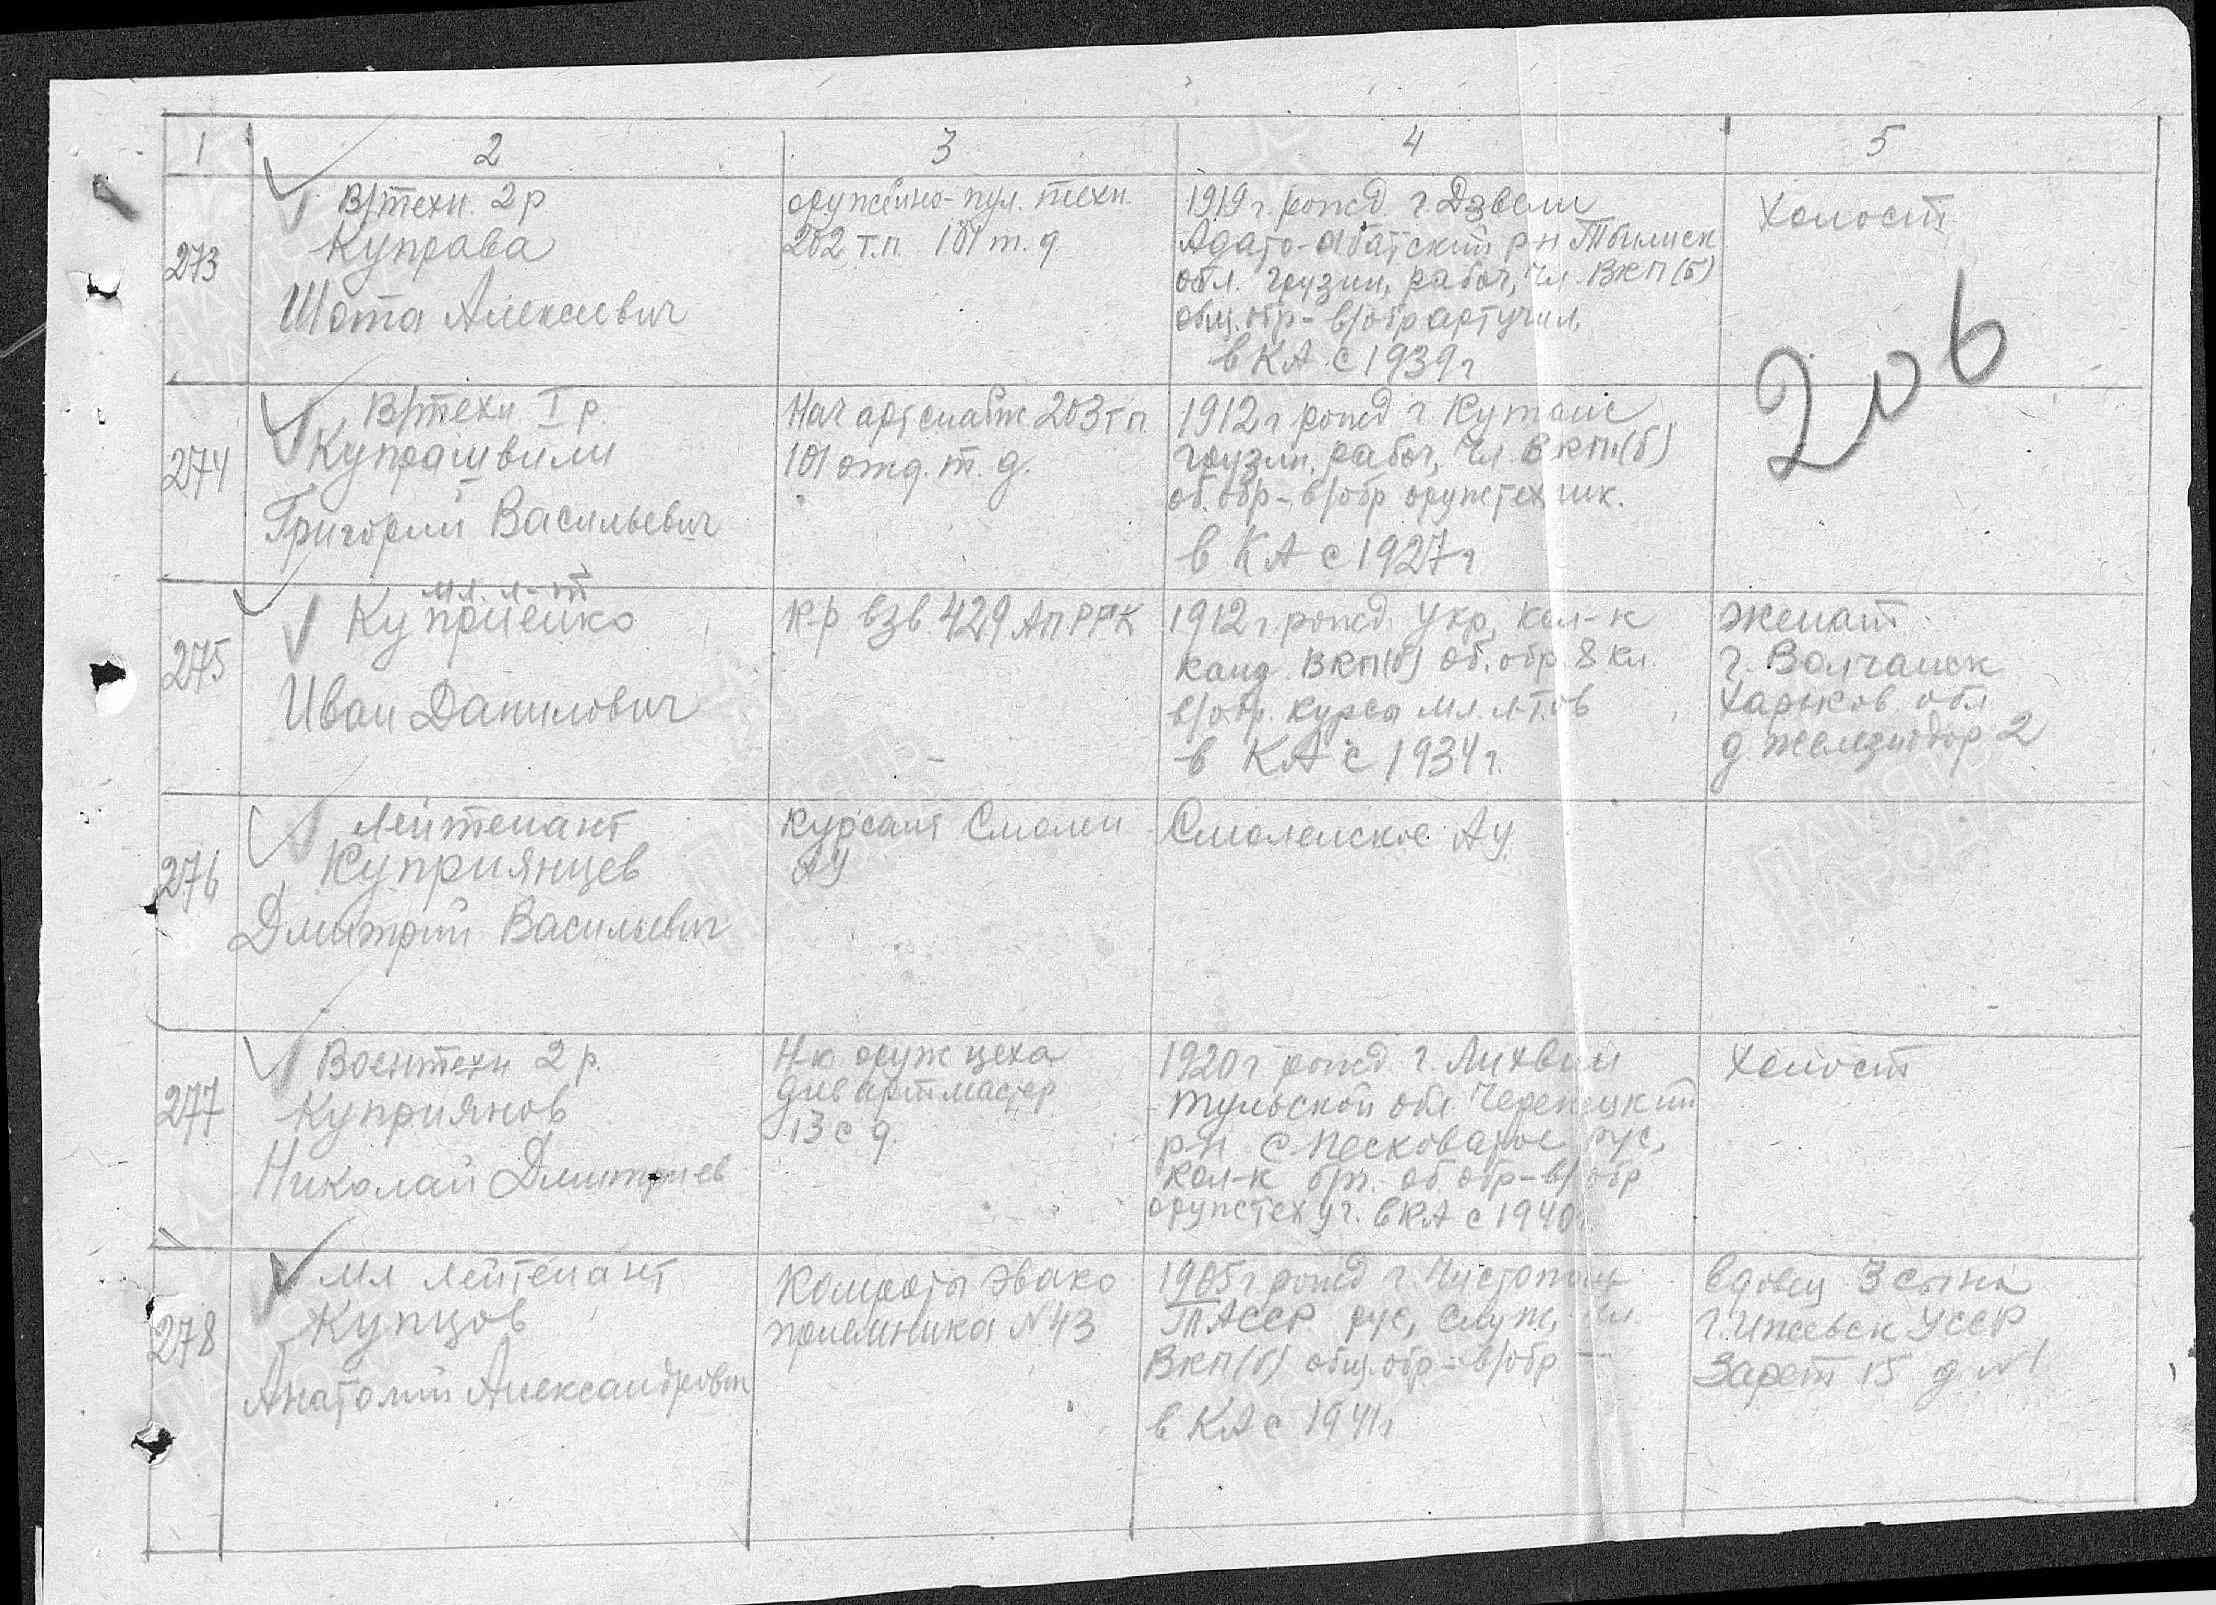 1 2 3 4 5
273
В/техн. 2 р
Куправа
Шота Алексеевич
оружейно-пул. техн.
202 т.п. 101 т. д
1919 г. рожд. г. Дзвели
Адато-Абатский р-н Тбилиск
обл. грузин, рабоч, чл. ВКП(б)
общ. обр - в/обр арт учил.
в КА с 1939 г
Холост
206
274
В/техн I р.
Купрашвили
Григорий Васильевич
Нач артснабж 203 т п
101 отд. т. д.
1912 г рожд г Кутаис
грузин, рабоч, чл. ВКП(б)
об. обр - в/обр оружтех шк.
в КА с 1927 г
275
мл. л-т
Куприенко
Иван Данилович
к-р взв. 429 АП РГК
1912 г. рожд. Укр, кол-к
канд. ВКП(б) об. обр. 8 кл.
в/обр. курсы мл. л-тов
в КА с 1934 г.
женат
г. Волчанск
Харьков. обл
д. железнодор 2
276
Лейтенант
Куприянцев
Дмитрий Васильевич
курсант Смолен
АУ
Смоленское АУ.
277
Воентехн 2 р.
Куприянов
Николай Дмитриев
Н-к оруж цеха
див артмастер
13 с д.
1920 г рожд. г. Лихвин
Тульской обл Черепецкий
р-н с. Песковатое рус,
кол-к б/п. об обр - в/обр
оружтех уч. в КА с 1940 г.
Холост
278
мл лейтенант
Купцов
Анатолий Александрович
Комроты Эвако
приемника N 43
1905 г рожд г Чистополь
ТАССР рус, служ, чл.
ВКП(б) общ. обр - в/обр —
в КА с 1941 г
вдовец 3 сына
г. Ижевск УССР
Зареч 15 д N 1